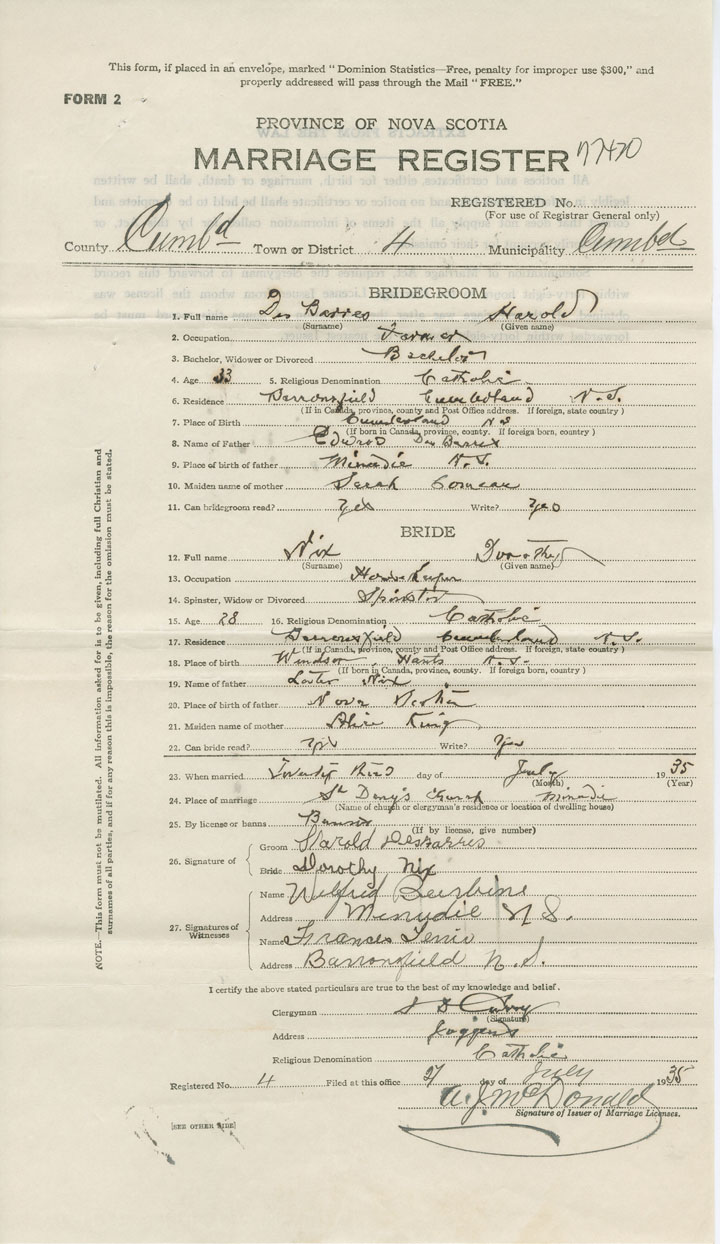 This form, if placed in an envelope, marked "Dominion Statistics—Free, penalty for improper use $300," and
properly addressed will pass through the Mail "FREE."
FORM 2
PROVINCE OF NOVA SCOTIA
MARRIAGE REGISTER
REGISTERED No.
(For use of Registrar General only)
County Cumbd Town or District 4 Municipality Cumbd
BRIDEGROOM
1. Full name Des Barres Harold
(Surname) (Given name)
2. Occupation Farmer
3. Bachelor, Widower or Divorced Bachelor
4. Age 33 5. Religious Denomination Catholic
6. Residence Barronsfield Cumberland N.S.
(If in Canada, province, county and Post Office address. If foreign, state country)
7. Place of Birth Cumberland N S
(If born in Canada, province, county. If foreign born, country)
8. Name of Father Des Barres
9. Place of birth of father Minudie N.S.
10. Maiden name of mother Sarah Comeau
11. Can bridegroom read? Yes Write? Yes
BRIDE
12. Full name Nix Dorothy
(Surname) (Given name)
13. Occupation Housekeeper
14. Spinster, Widow or Divorced Spinster
15. Age 28 16. Religious Denomination Catholic
17. Residence Barronsfield Cumberland N.S.
(If in Canada, province, county and Post Office address. If foreign, state country)
18. Place of birth Windsor, Hants N.S.
(If born in Canada, province, county. If foreign born, country)
19. Name of father Nix
20. Place of birth of father Nova Scotia
21. Maiden name of mother Alice King
22. Can bride read? Yes Write? Yes
23. When married Twenty third day of July 1935
(Month) (Year)
24. Place of marriage St Deny's Church Minudie
(Name of church or clergyman's residence or location of dwelling house)
25. By license or banns Banns
(If by license, give number)
26. Signature of
Groom Harold Desbarres
Bride Dorothy Nix
27. Signatures of Witnesses
Name Wilfred
Address Minudie N S.
Name Frances
Address Barronsfield N.S.
I certify the above stated particulars are true to the best of my knowledge and belief.
Clergyman
(Signature)
Address Joggins
Religious Denomination Catholic
Registered No. 4 Filed at this office 27 day of July 1935
A. J. McDonald
Signature of Issuer of Marriage Licenses.
[SEE OTHER SIDE]
NOTE.—This form must not be mutilated. All information asked for is to be given, including full Christian and
surnames of all parties, and if for any reason this is impossible, the reason for the omission must be stated.